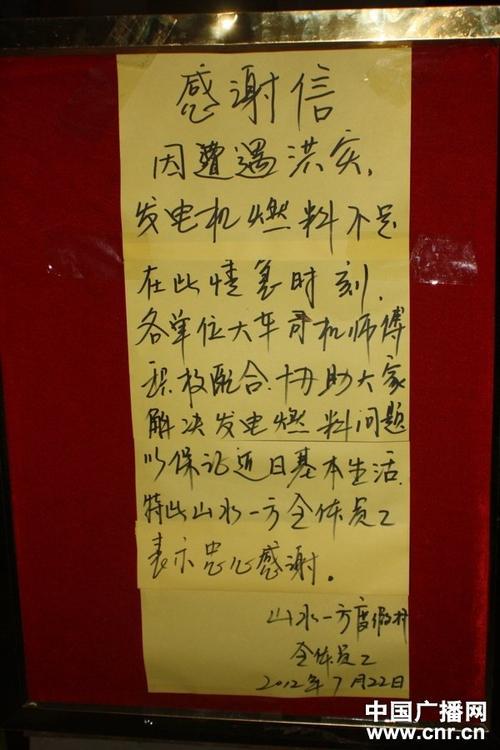 感谢信
因遭遇洪灾,
发电机燃料不足
在此情急时刻,
各单位大车司机师傅
积极配合.协助大家
解决发电燃料问题
以保证近日基本生活.
特此山水一方全体员工
表示忠心感谢.
山水一方度假村
全体员工
2012年7月22日
中国广播网
www.cnr.cn